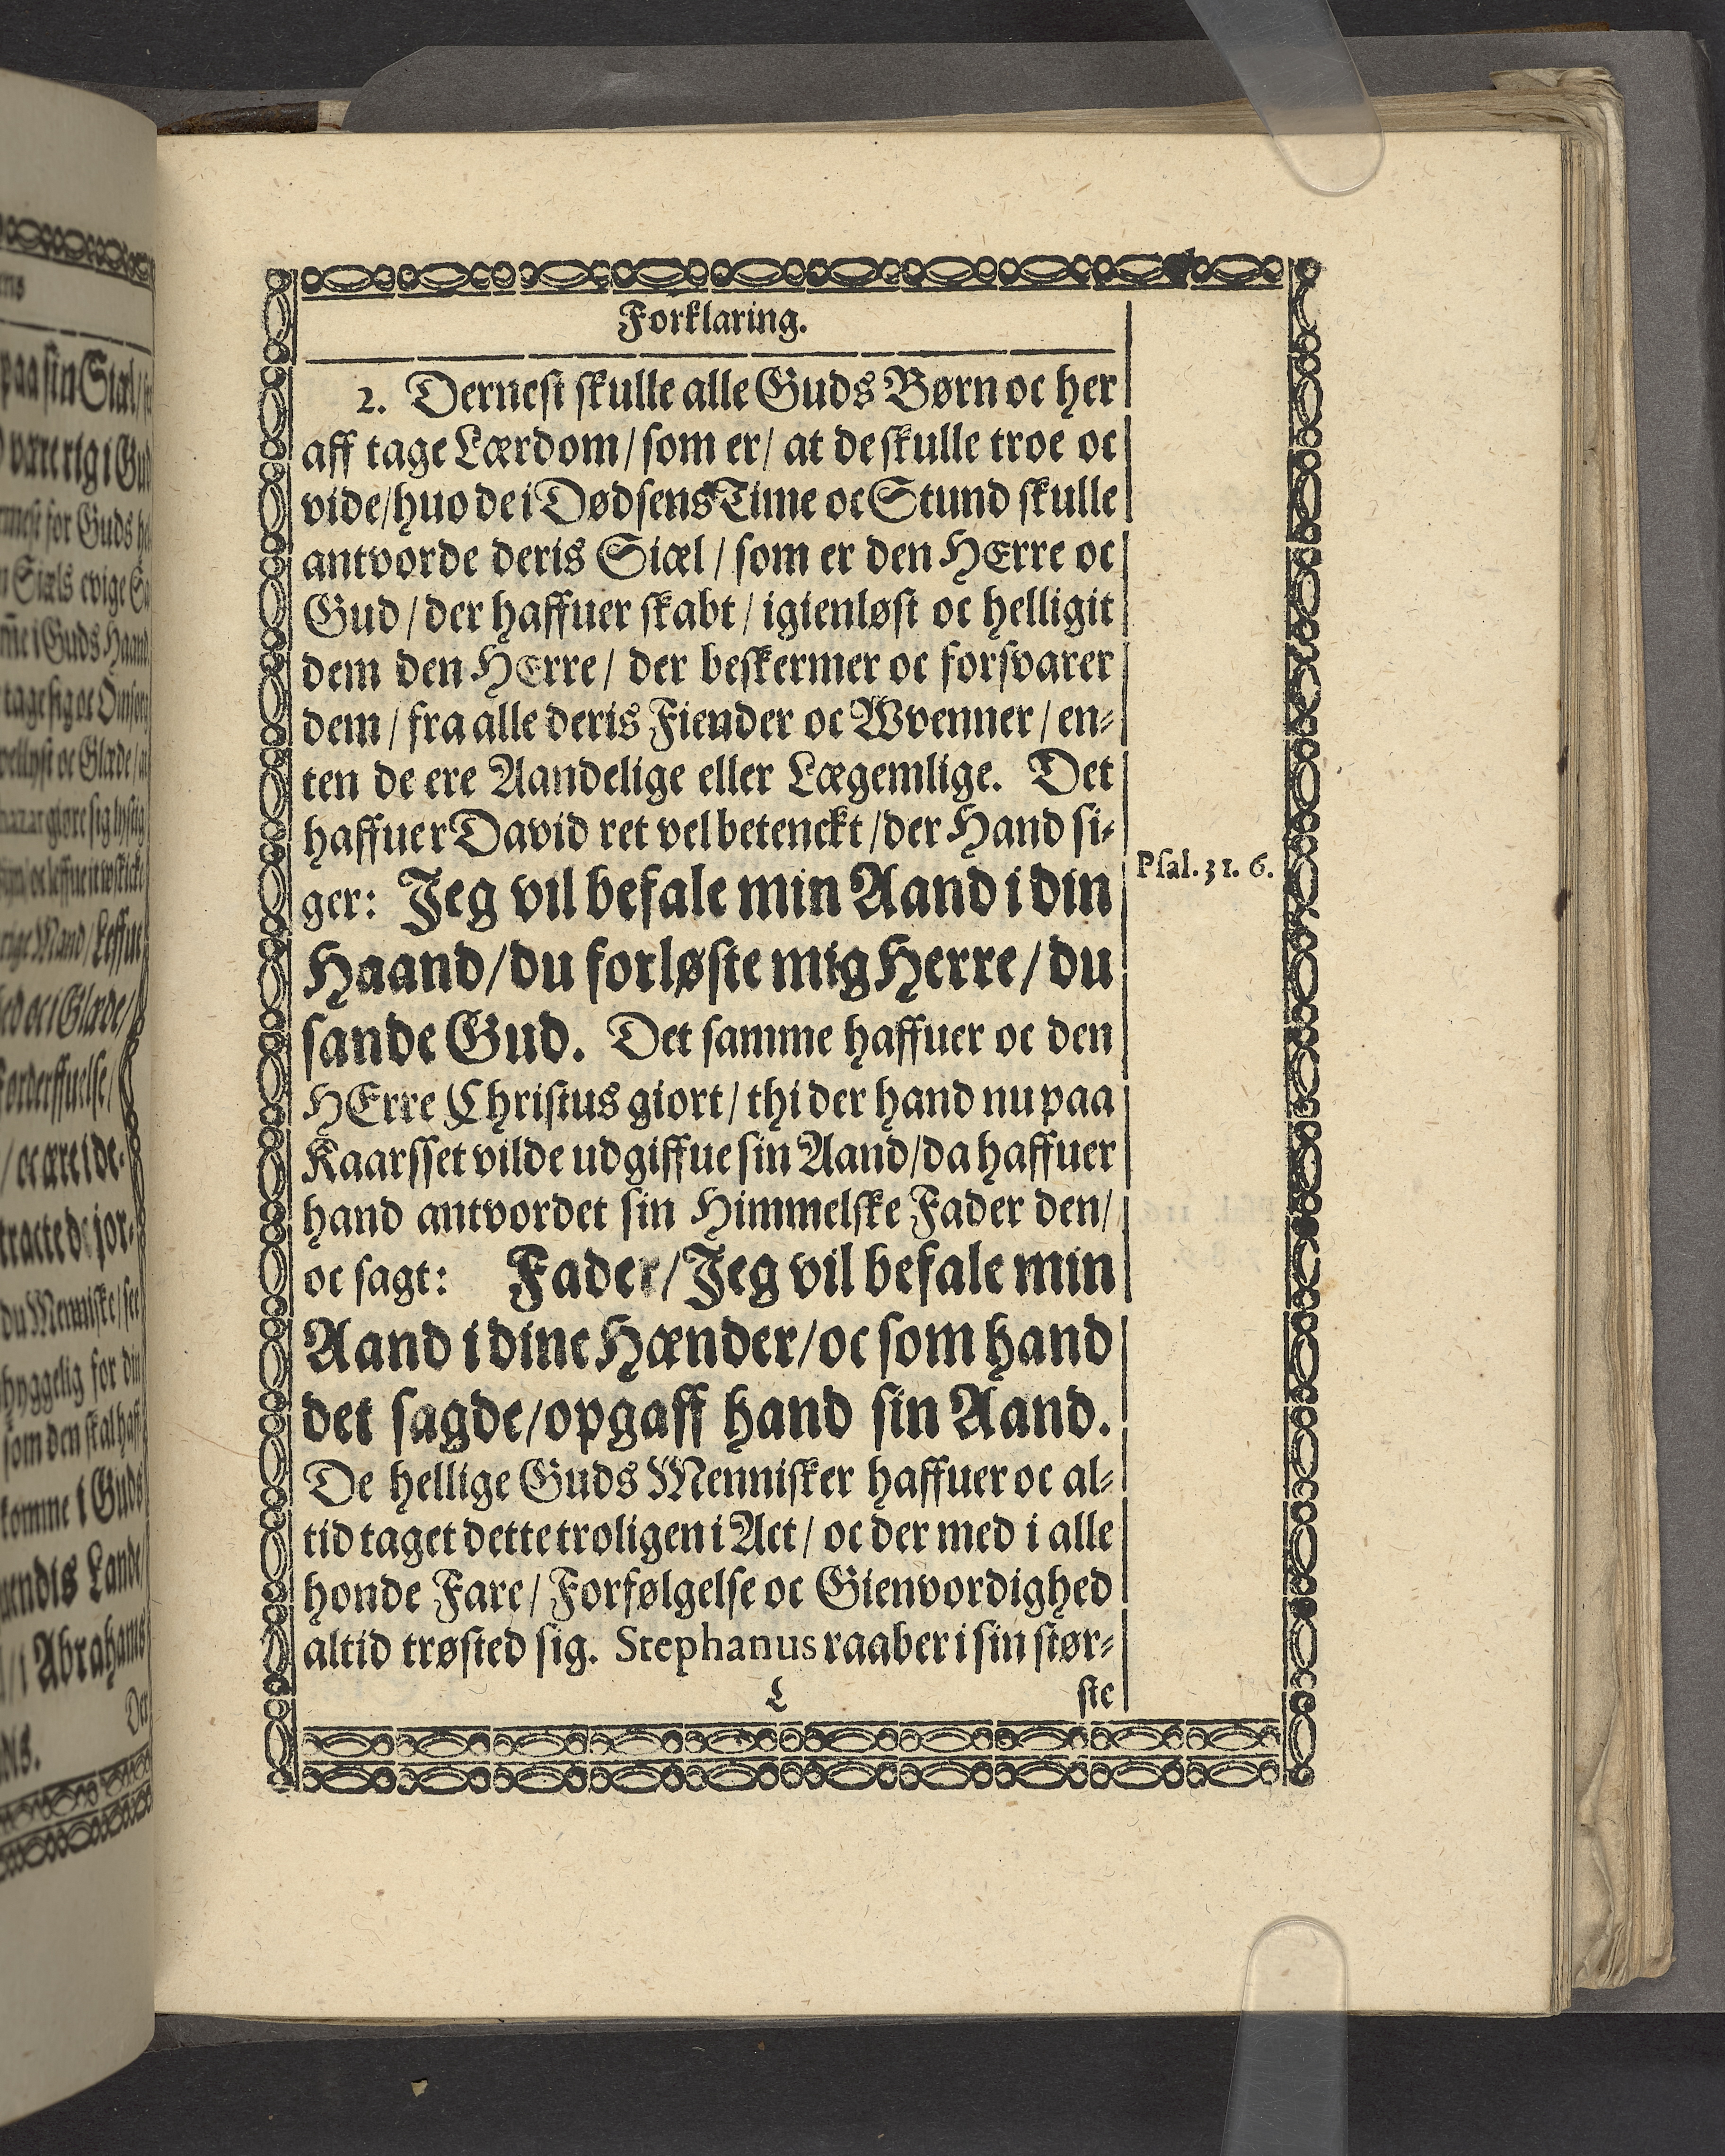 Forklaring.
2. Dernest skulle alle Guds Børn oc her
aff tage Lærdom/ som er/ at de skulle troe oc
vide/ huo de i Dødsens Time oc Stund skulle
antvorde deris Siæl/ som er den HErre oc
Gud/ der haffuer skabt/ igienløst oc helligit
dem den HErre/ der beskermer oc forsvarer
dem/ fra alle deris Fiender oc Wvenner/ en-
ten de ere Aandelige eller Lægemlige. Det
haffuer David ret vel betenckt/ der Hand si-
ger: Jeg vil befale min Aand i din
Haand/ du forløste mig Herre/ du
sande Gud. Det samme haffuer oc den
HErre Christus giort/ thi der hand nu paa
Kaarsset vilde udgiffue sin Aand/ da haffuer
hand antvordet sin Himmelske Fader den/
oc sagt: Fader/ Jeg vil befale min
Aand i dine Hænder/ oc som hand
det sagde/ opgaff hand sin Aand.
De hellige Guds Mennisker haffuer oc al-
tid taget dette troligen i Act/ oc der med i alle
honde Fare/ Forfølgelse oc Gienvordighed
altid trøsted sig. Stephanus raaber i sin stør-
L ste
Psal. 31. 6.